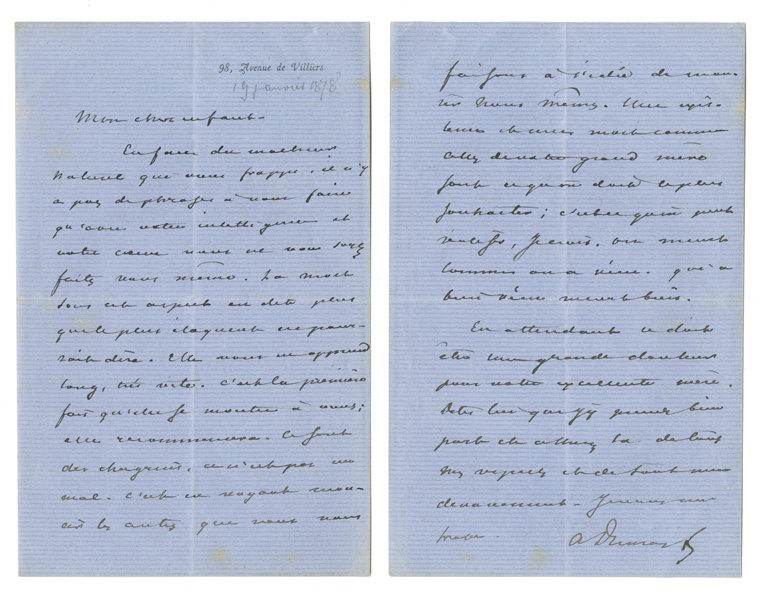 98, Avenue de Villiers
19 janvier 1878
Mon cher enfant –
En face du malheur
naturel que vous frappe, il n'y
a pas de phrases à vous faire
qu'avec votre intelligence et
votre cœur vous ne vous soyez
faites vous même. La mort
sous cet aspect en dit plus
que le plus éloquent ne pour-
rait dire. Elle vous en apprend
long, très vite. C'est la première
fois qu'elle se montre à vous;
elle recommencera. Ce sont
des chagrins, ce n'est pas un
mal. C'est en voyant mou-
rir les autres que nous nous
faisons à l'idée de mou-
rir nous mêmes. Une exis-
tence et une mort comme
celles de votre grand mère
sont ce qu'on doit le plus
souhaiter; c'est ce qu'on peut
, je crois. on meurt
comme on a vécu. qui a
bien vécu meurt bien.
En attendant ce doit
être une grande douleur
pour votre excellente mère.
Dites lui que j'y prends bien
part et assurez la de tous
mes respects et de tout mon
dévouement – Je vous em-
brasse.
A Dumas f